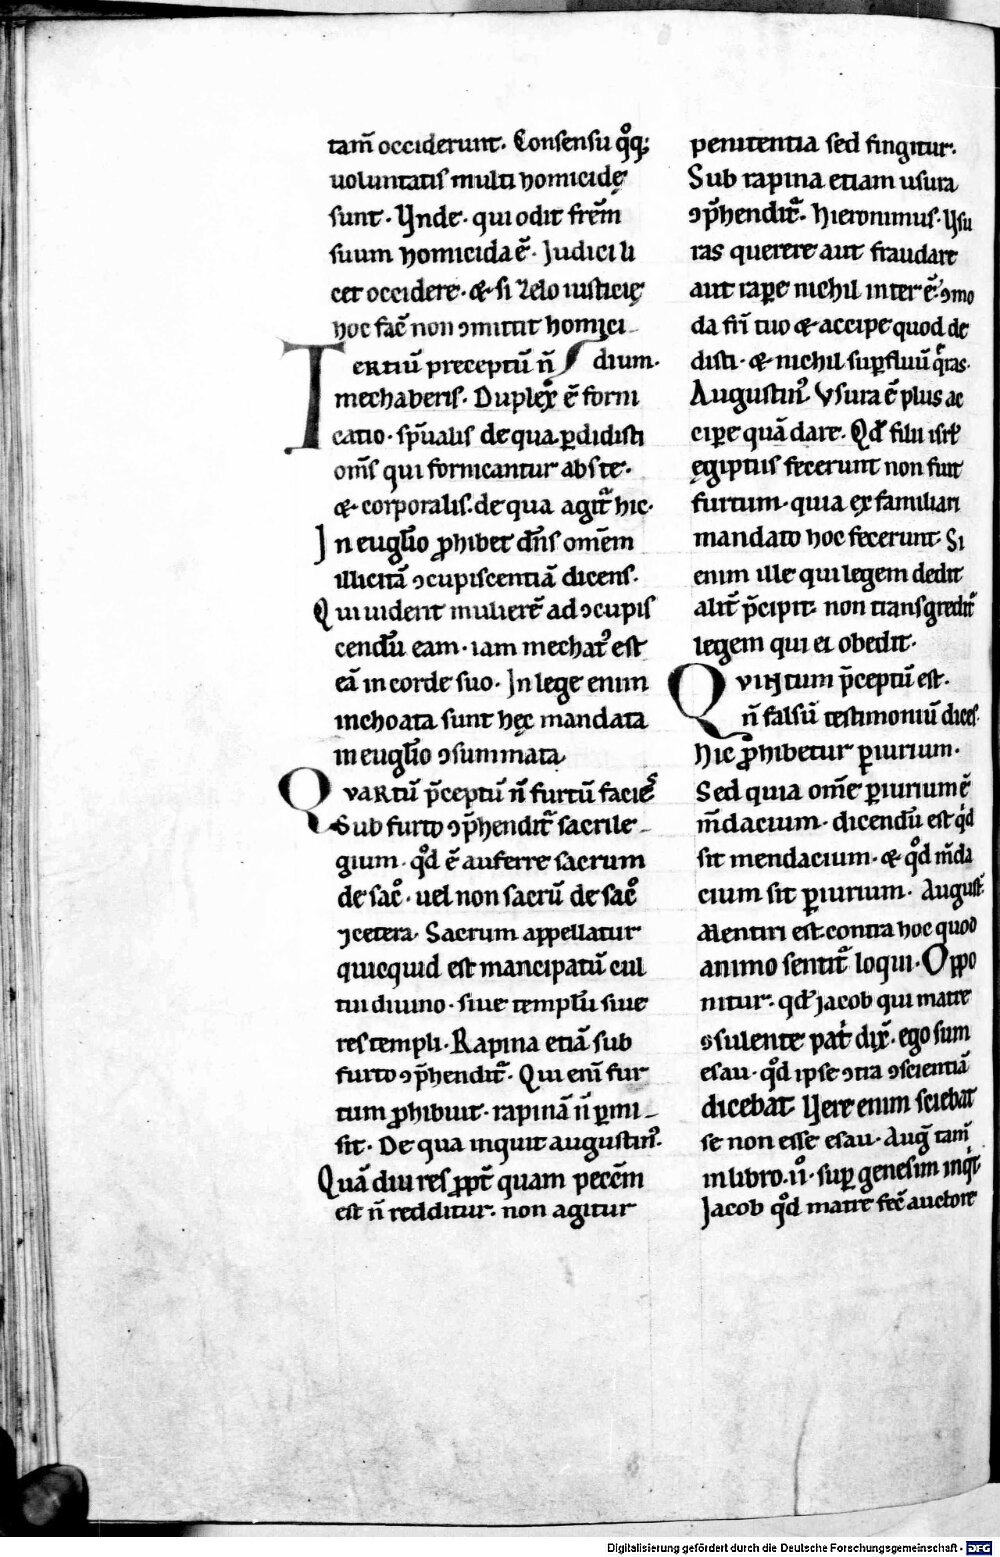 tam̄ occiderunt. Consensu qͦq;
uoluntatis multi homicidę
sunt. Vnde. qui odit frēm
suum homicida ē. Judici li
cet occidere. & si zelo iusticię
hoc fac̄ non ꝯmittit homici-
Tertiū preceptū n̄ dium.
mechaberis. Duplex ē forni
catio. sp̄ualis de qua ꝑdidisti
om̄s qui fornicantur abs te.
& corporalis. de qua agit᷑ hic.
In euglīo ꝓhibet dn̄s omēm
illicitā ꝯcupiscentiā dicens.
Qui uiderit mulierē ad ꝯcupis
cendū eam. iam mechat᷒ est
eā in corde suo. In lege enim
inchoata sunt hęc mandata
in euglīo ꝯsummata
Qvartū p̄ceptū n̄ furtū facies
Sub furto ꝯp̄hendit᷑ sacrile-
gium. qͦd ē auferre sacrum
de sacͦ. uel non sacrū de sacͦ
⁊cetera. Sacrum appellatur
quicquid est mancipatū cul
tui diuino. siue templū siue
res templi. Rapina etiā sub
furto ꝯp̄hendit᷑. Qui enī fur
tum ꝓhibuit. rapinā n̄ ꝑmi-
sit. De qua inquit augustin᷒.
Quādiu res ꝓpt̄ quam peccm̄
est n̄ redditur. non agitur
penitentia sed fingitur.
Sub rapina etiam usura
ꝯp̄hendit᷑. Hieronimus. Vsu
ras querere aut fraudare
aut raꝑe nichil inter ē. ꝯmo
da fr̄i tuo & accipe quod de
disti. & nichil suꝑfluū q̄ras.
Augustin᷒. Vsura ē plus ac
ciꝑe quā dare. Qd̄ filii isrl̄
ęgiptiis fecerunt non fuit
furtum. quia ex familiari
mandato hoc fecerunt. Si
enim ille qui legem dedit
alit̄ p̄cipit. non transgredit᷑
legem qui ei obedit.
Qvintum p̄ceptū est.
n̄ falsū testimoniū dices.
Hic ꝓhibetur ꝑiurium.
Sed quia om̄e ꝑiurium ē
m̄dacium. dicendū est qͥd
sit mendacium. & qͦd m̄da
cium sit ꝑiurium. August̄.
Mentiri est. contra hoc quod
animo sentit᷑ loqui. Oppo
nitur. qd̄ jacob qui matre
ꝯsulente patͥ dix̄. ego sum
esau. qͦd ipse ꝯtra ꝯscientiā
dicebat. Vere enim sciebat
se non esse esau. Auḡ tam̄
in libro .iiͦ. suꝑ genesim inqͥt.
Jacob qͦd matre fec̄ auctore
Digitalisierung gefördert durch die Deutsche Forschungsgemeinschaft - DFG